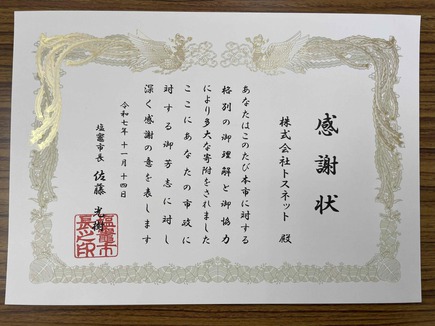 感謝状
株式会社トスネット 殿
あなたはこのたび本市に対する
格別の御理解と御協力
により多大な寄附をされました
ここにあなたの市政に
対する御芳志に対し
深く感謝の意を表します
令和七年十一月十四日
塩竈市長 佐藤光樹
塩竈市
長之印